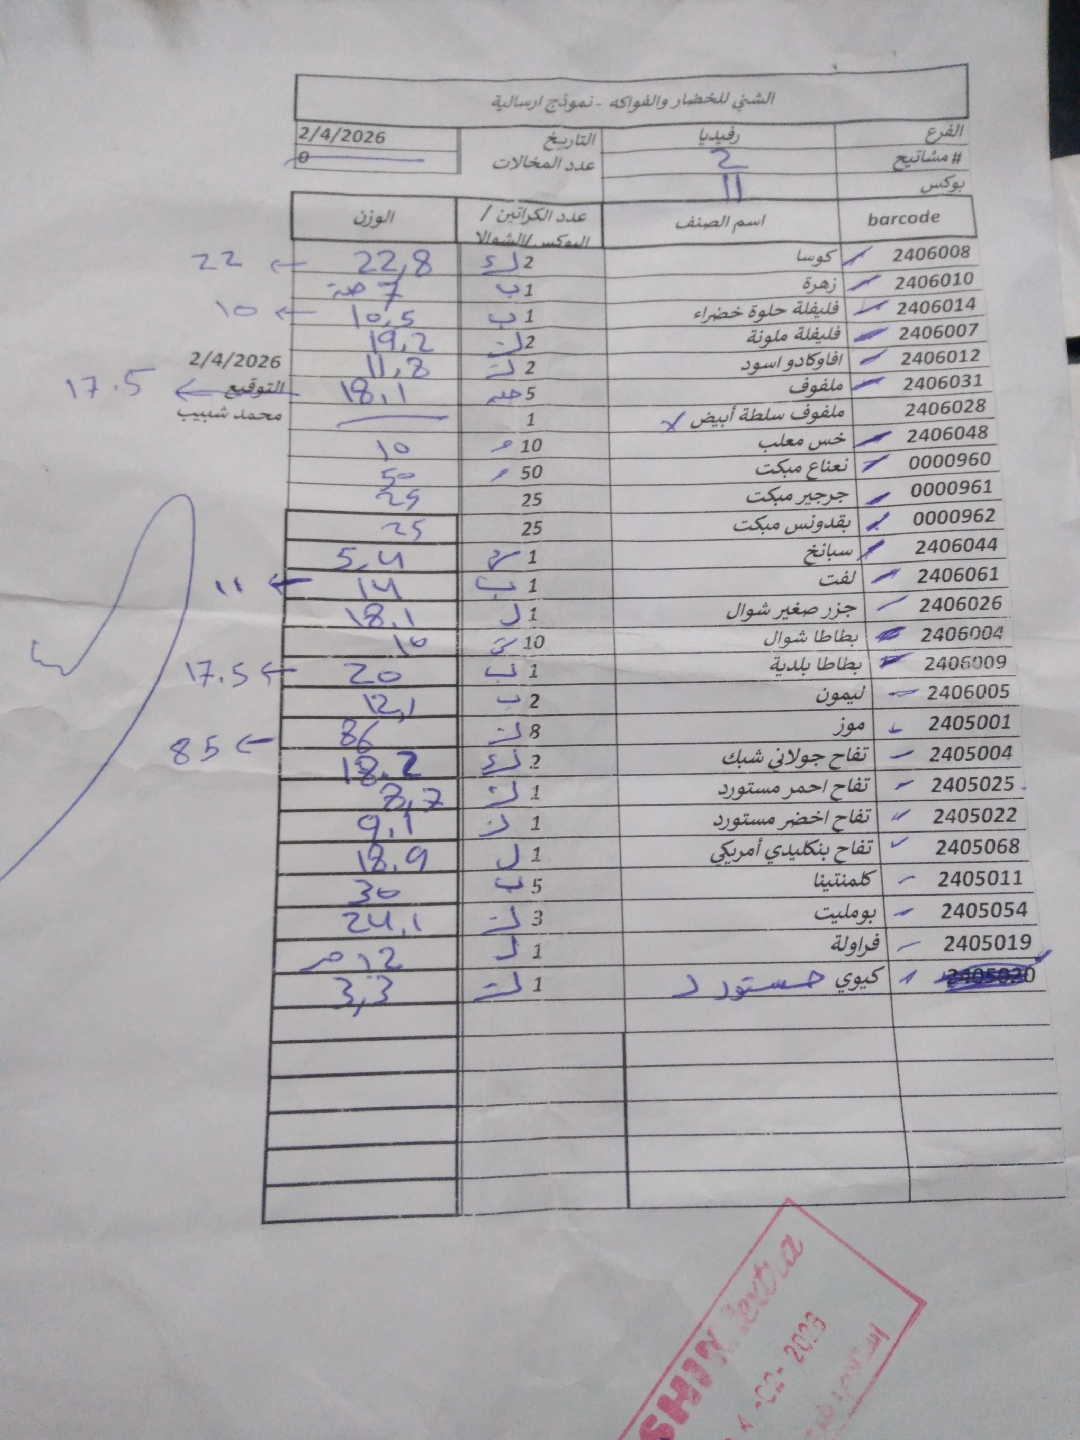 الشني للخضار والفواكه - نموذج ارسالية
الفرع رفيديا التاريخ 2/4/2026
# مشاتيح 2 عدد المخالات 0
بوكس 11
barcode اسم الصنف عدد الكراتين / البوكس/الشوالا الوزن
2406008 كوسا 2 22,8 ← 22
2406010 زهرة 1 ب 7
2406014 فليفلة حلوة خضراء 1 ب 10,5 ← 10
2406007 فليفلة ملونة 2 19,2
2406012 افاوكادو اسود 2 11,8
2/4/2026
2406031 ملفوف 5 18,1 ← 17.5
التوقيع
2406028 ملفوف سلطة أبيض x 1
محمد شبيب
2406048 خس معلب 10 10
0000960 نعناع مبكت 50 50
0000961 جرجير مبكت 25 25
0000962 بقدونس مبكت 25 25
2406044 سبانخ 1 5,4
2406061 لفت 1 ب 14 ← 11
2406026 جزر صغير شوال 1 18,1
2406004 بطاطا شوال 10 10
2406009 بطاطا بلدية 1 ب 20 ← 17.5
2406005 ليمون 2 ب 12,1
2405001 موز 8 86 ← 85
2405004 تفاح جولاني شبك 2 18.2
2405025 تفاح احمر مستورد 1 8,7
2405022 تفاح اخضر مستورد 1 9,1
2405068 تفاح بنكليدي أمريكي 1 18.9
2405011 كلمنتينا 5 ب 30
2405054 بومليت 3 24,1
2405019 فراولة 1 12
2405020 كيوي مستورد 1 3,3
SHINI extra
-02- 2026